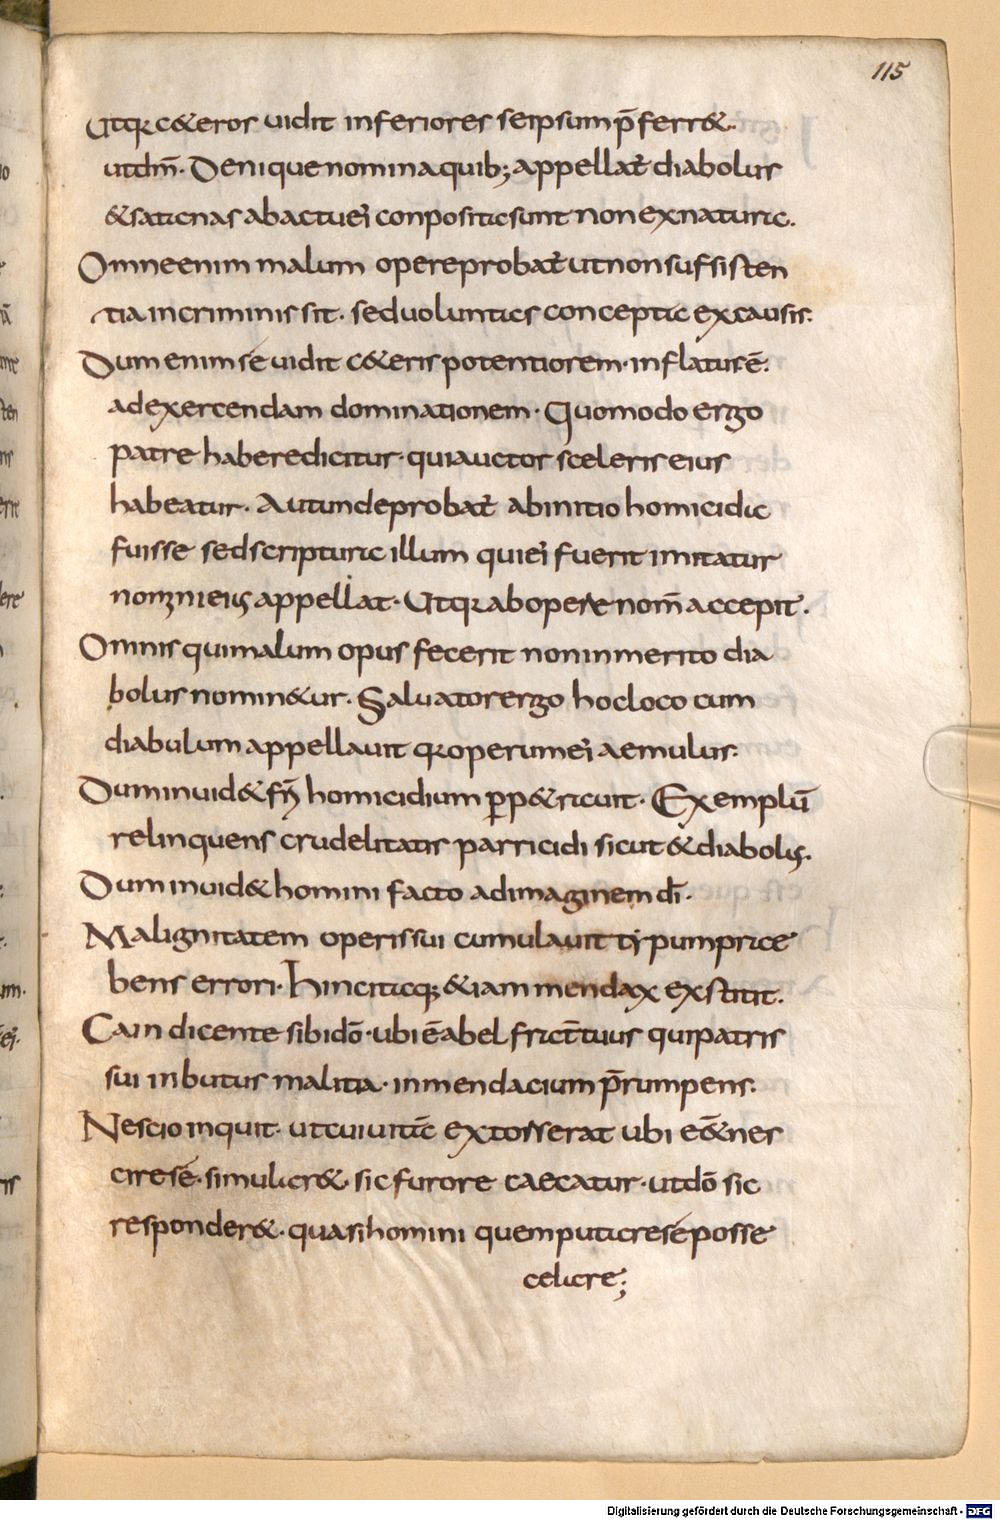 115
Utq̄ c&eros uidit inferiores seipsum p̄ferr&.
utdm̄. Denique nomina quib; appellat̄ diabolus
& satanas ab actu ei conposita sunt non ex natura.
Omne enim malum opere probat̄ ut non sufsisten
tia in criminis sit. sed uoluntas concepta ex causis.
Dum enim se uidit c&eris potentiorem. inflatus ē.
ad exercendam dominationem. Quomodo ergo
patre habere dicitur. qui auctor sceleris eius
habeatur. Aut unde probat̄ ab initio homicida
fuisse sed scriptura illum qui ei fuerit imitatur
nomini eius appellat. Utq̄ ab opere nom̄ accepit.
Omnis qui malum opus fecerit non inmerito dia
bolus nomin&ur. Saluator ergo hoc loco cum
diabulum appellauit q̄ operum ei aemulus.
Dum inuid& homicidium perp&rauit. Exemplū
relinquens crudelitatis parricidi sicut & diabolus.
Dum inuid& homini facto ad imaginem dī.
Malignitatem operis sui cumulauit typum prae
bens errori. Hinc itaq; &iam mendax exstitit.
Cain dicente sibi dō. ubi ē abel frat̄ tuus qui patris
sui inbutus malitia. in mendacium p̄rumpens.
Nescio inquit. ut cui uitā extorserat ubi e&nes
cire se. simular&. sic furore caecatur. ut dō sic
responder&. quasi homini quem putare se posse
celare;
Digitalisierung gefördert durch die Deutsche Forschungsgemeinschaft - DFG